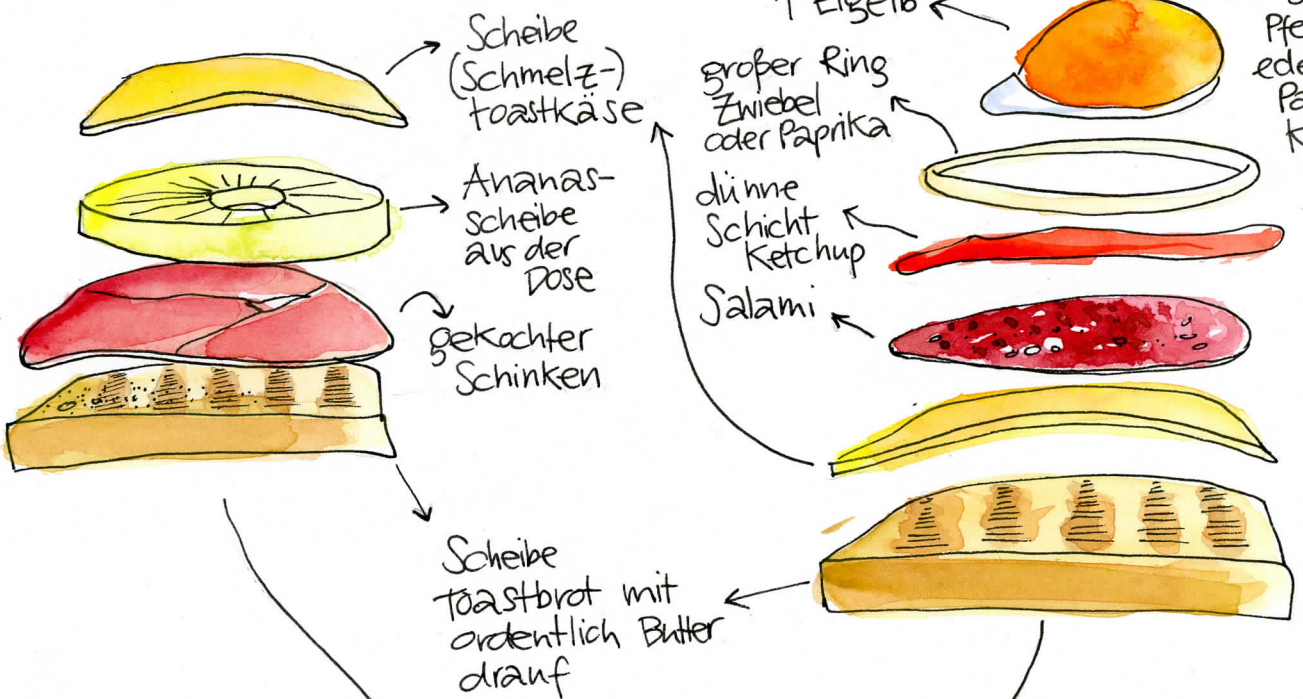 Scheibe
(Schmelz-)
toastkäse
Ananas-
scheibe
aus der
Dose
gekochter
Schinken
Scheibe
Toastbrot mit
ordentlich Butter
drauf
1 Eigelb
großer Ring
Zwiebel
oder Paprika
dünne
Schicht
Ketchup
Salami